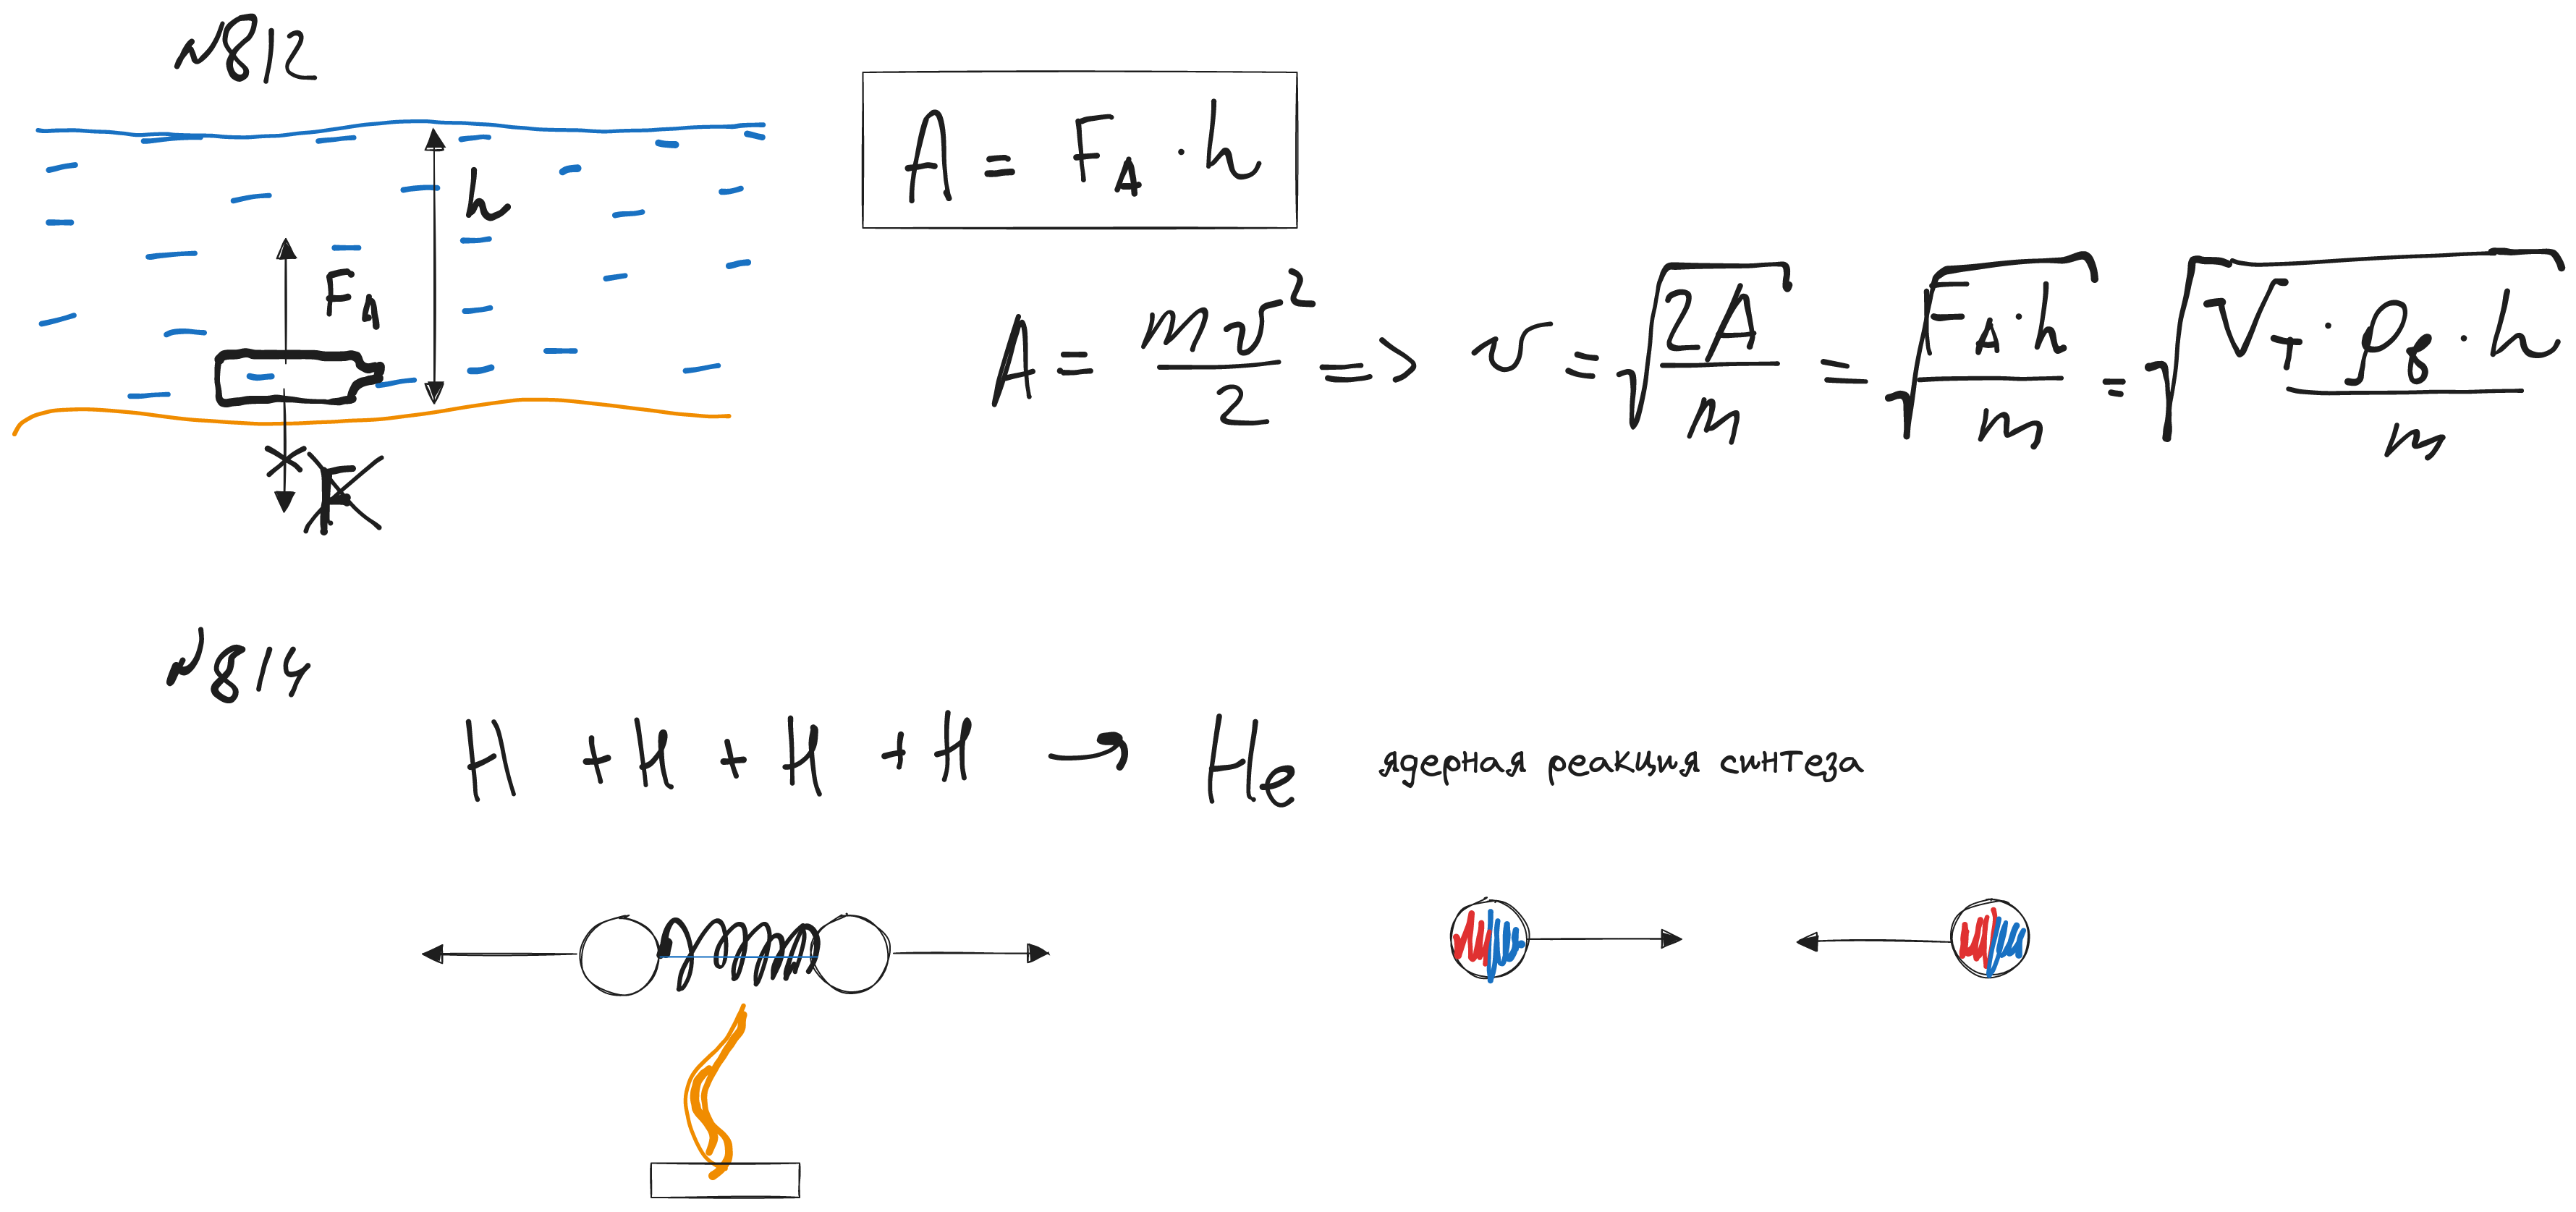 №812
A = F_A · h
h
F_A
F
A = mv²/2 => v = √(2A/m) = √(F_A · h/m) = √(V_T · ρ_в · h/m)
№814
H + H + H + H → He ядерная реакция синтеза